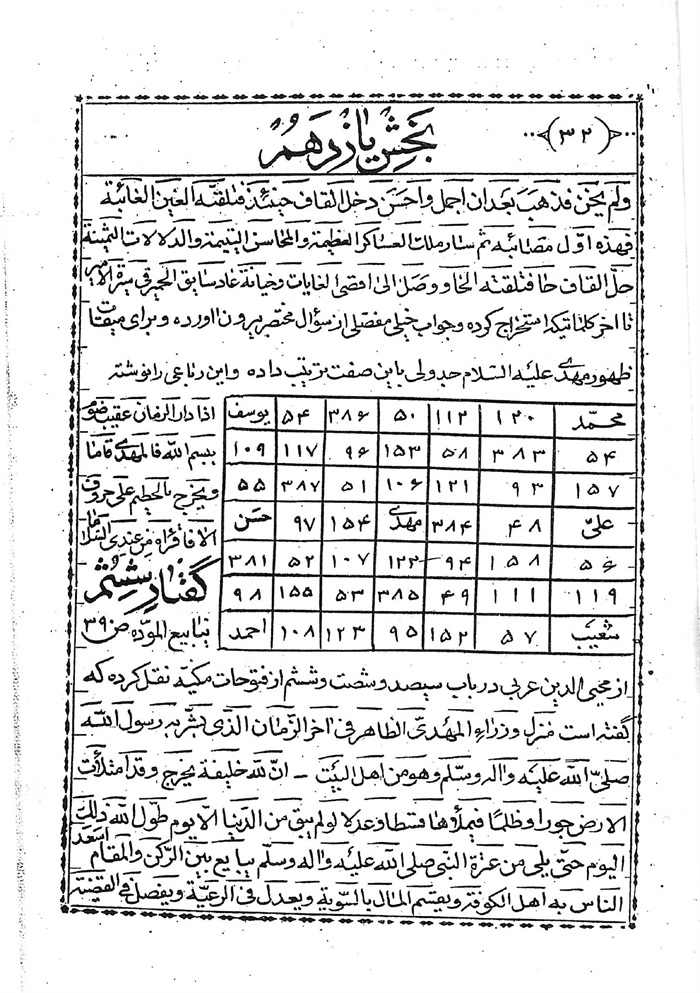 ﴿٣٢﴾
بخش یازدهم
ولم یخن فذهب بعد ان اجمل و احسن دخل القاف حینئذ فتلقته العین الغائبة
فهذه اوّل مصائبه ثم ستار ملك العساکر العظیمة والمحاسن الیتیمة والدلالات الثمینة
حلّ القاف حا فتلقته الخاء و وصل الی اقصی الغایات وخیانة عاد سابق الحیر فی سیرة الامیر
تا اخر کلماتیکه استخراج کرده و جواب خیلی مفصلی از سؤال مختصر بیرون اورده و برای میقات
ظهور مهدی علیه السلام جدولی باین صفت ترتیب داده و این رباعی را نوشته
محمّد ١٢٠ ١١٢ ٥٠ ٣٨٦ ٥٤ یوسف
٥٤ ٣٨٣ ٥٨ ١٥٣ ٩٦ ١١٧ ١٠٩
١٥٧ ٩٣ ١٢١ ١٠٦ ٥١ ٣٨٧ ٥٥
علیّ ٤٨ ٣٨٤ مهدی ١٥٤ ٩٧ حسن
٥٦ ١٥٨ ٩٤ ١٢٢ ١٠٧ ٥٢ ٣٨١
١١٩ ١١١ ٤٩ ٣٨٥ ٥٣ ١٥٥ ٩٨
شعیب ٥٧ ١٥٢ ٩٥ ١٢٣ ١٠٨ احمد
اذا دار الزمان عقیب صوم
ببسم الله فالمهدی قاما
ویخرج بالحطیم علی حروف
الا فاقراه من عندی السلاما
گفتار ششم
ینابیع المودّه ص ٣٩٠
از محیی الدین عربی در باب سیصد و شصت و ششم از فتوحات مکیه نقل کرده که
گفته است منزل وزراء المهدی الظاهر فی اخر الزمان الذی بشّر به رسول الله
صلیّ الله علیه واله وسلّم وهو من اهل البیت – انّ لله خلیفة یخرج وقد امتلأت
الارض جورا وظلما فیملؤها قسطا وعدلا لو لم یبق من الدنیا الا یوم طول الله ذلك
الیوم حتیّ یلی من عترة النبی صلی الله علیه واله وسلّم یبایع بین الرّکن والمقام اسعد
الناس به اهل الکوفة ویقسم المال بالسّویة ویعدل فی الرعیّة ویفصل فی القضیّة